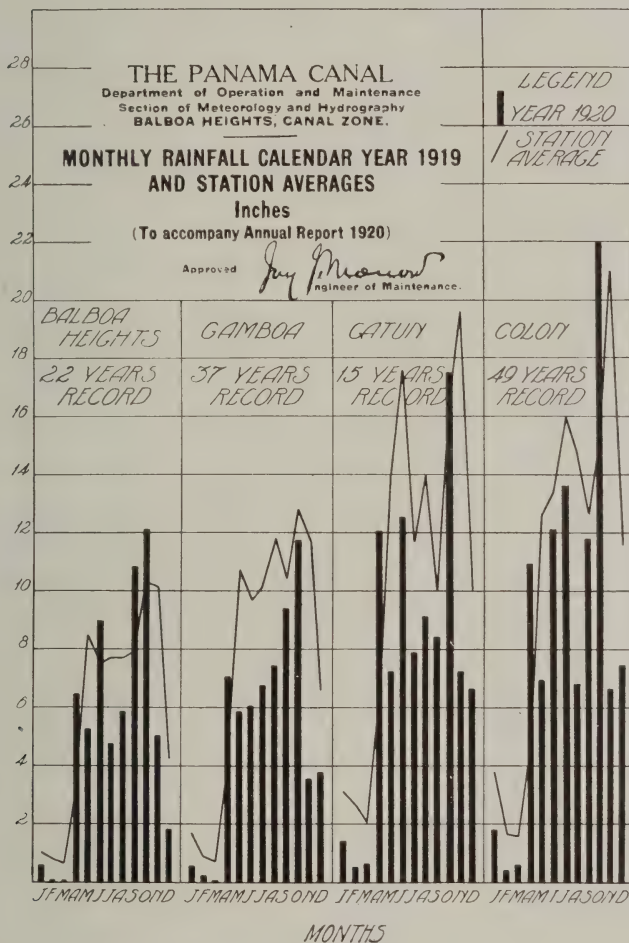 THE PANAMA CANAL
Department of Operation and Maintenance
Section of Meteorology and Hydrography
BALBOA HEIGHTS, CANAL ZONE.
MONTHLY RAINFALL CALENDAR YEAR 1919
AND STATION AVERAGES
Inches
(To accompany Annual Report 1920)
Approved
ngineer of Maintenance.
LEGEND
YEAR 1920
STATION
AVERAGE
28
26
24
22
20
18
16
14
12
10
8
6
4
2
BALBOA
HEIGHTS
22 YEARS
RECORD
GAMBOA
37 YEARS
RECORD
GATUN
15 YEARS
RECORD
COLON
49 YEARS
RECORD
JFMAMJJASOND
JFMAMJJASOND
JFMAMJJASOND
JFMAMJJASOND
MONTHS